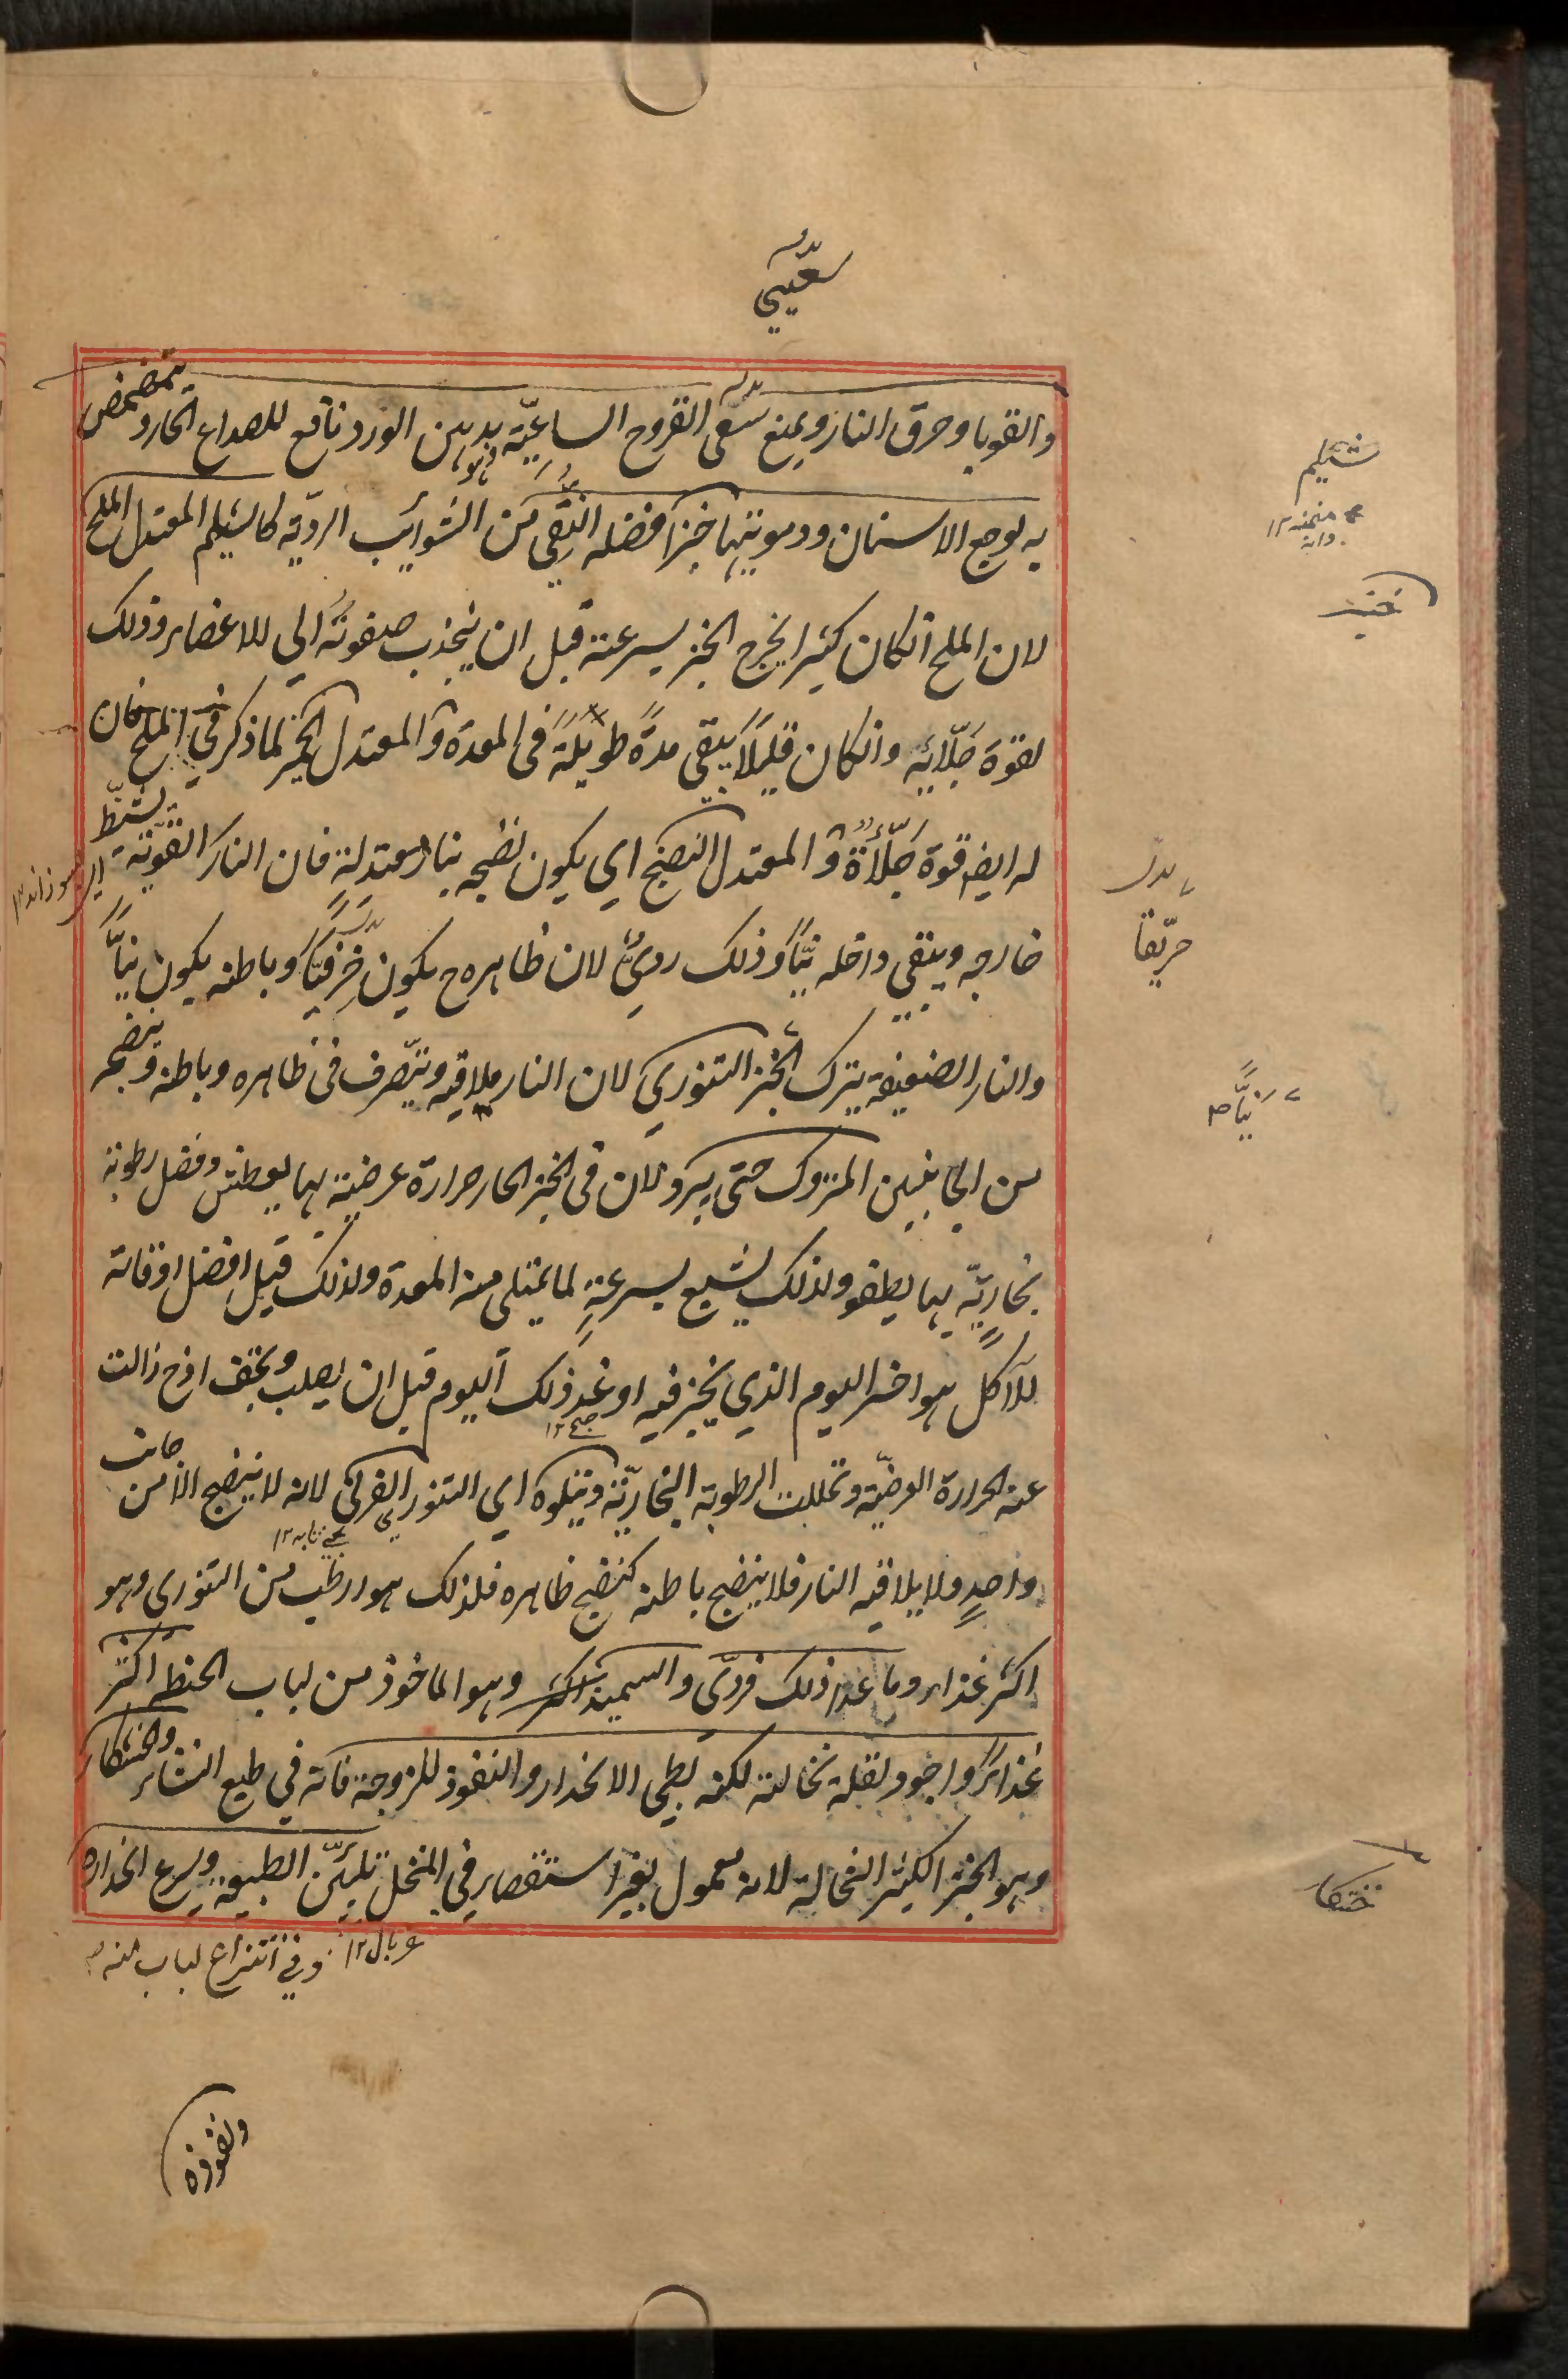 سعيي
والقوبا وحرق النار ويمنع سعى القروح الساعيّة بدهن الورد نافع للصداع الحار ويتمضمض
به لوجع الاسنان ودمويتها خبز افضله النقي من الشوايب الرديّة كالشيلم المعتدل الملح
لان الملح انكان كثيرا يخرج الخبز بسرعة قبل ان ينجذب صفوته الي الاعضاء وذلك
لقوة جلّائه وانكان قليلاً يبقى مدةً طويلةً فى المعدة والمعتدل الخمير لما ذكر في الملح فان
له ايضا قوة جلّاءة والمعتدل النضج اي يكون نضجه بنار معتدلة فان النار القوية يشيّط
خارجه ويبقى داخله نيّاً وذلك رديٌّ لان ظاهره ح يكون خزفيّاً وباطنه يكون نيّاً
والنار الضعيفة يترك الخبز التنوري لان النار يلاقيه ويتصرف في ظاهره وباطنه وينضجه
من الجانبين المتروك حتى يبرد لان فى الخبز الحار حرارة عرضية بها يعطش وفضل رطوبة
بخاريّة بها يطفو ولذلك يشبع بسرعةٍ لما يمتلى منه المعدة ولذلك قيل افضل اوقاته
للآكل هو اخر اليوم الذي يخبز فيه او غد ذلك اليوم قبل ان يصلب ويجفف اذ ح زالت
عنه الحرارة العرضيّة وتحللت الرطوبة البخاريّة ويتلوه اي التنوري الفرنى لانه لا ينضج الا من جانب
واحدٍ ولا يلاقيه النار فلا ينضج باطنه كنضج ظاهره فلذلك هو ارطب من التنورى وهو
اكثر غذاء وما عدا ذلك فردّى والسميذ وهو الماخوذ من لباب الحنطة اكثر
غذاءً واجود لقلة نخالته لكنه بطى الانحدار والنفوذ للزوجة فانه في طبع النشاء والخشكار
وهو الخبز الكثير النخالة لانه معمول بغير استقصاء في المنخل تليّن الطبيعة ويسرع انحداره
غربال ١٢ وفي انتزاع لباب منه
ونفوذه
شيلم
خمير
بدل
حريقا
نيّاً
خشكار